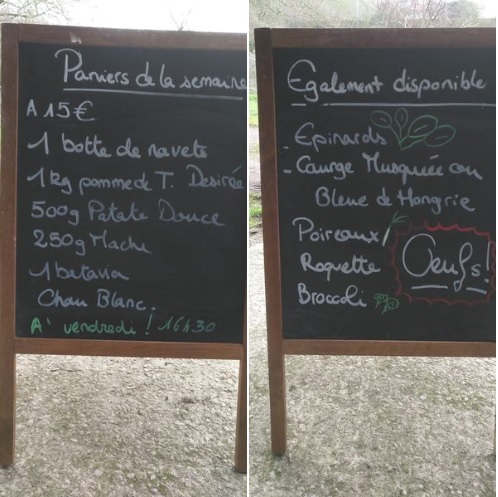 Paniers de la semaine
A 15€
1 botte de navets
1 kg pomme de T. Desirée
500g Patate Douce
250g Mache
1 batavia
Chou Blanc.
A' vendredi ! 16h30
Egalement disponible
Epinards
- Courge Musquée ou
Bleue de Hongrie
Poireaux
Roquette
Broccoli
Oeufs!